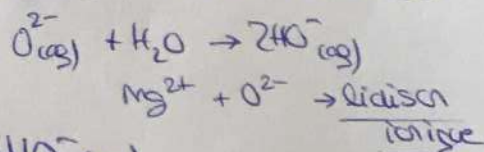 O²⁻(aq) + H₂O → 2HO⁻(aq)
Mg²⁺ + O²⁻ → liaison
ionique
HO⁻